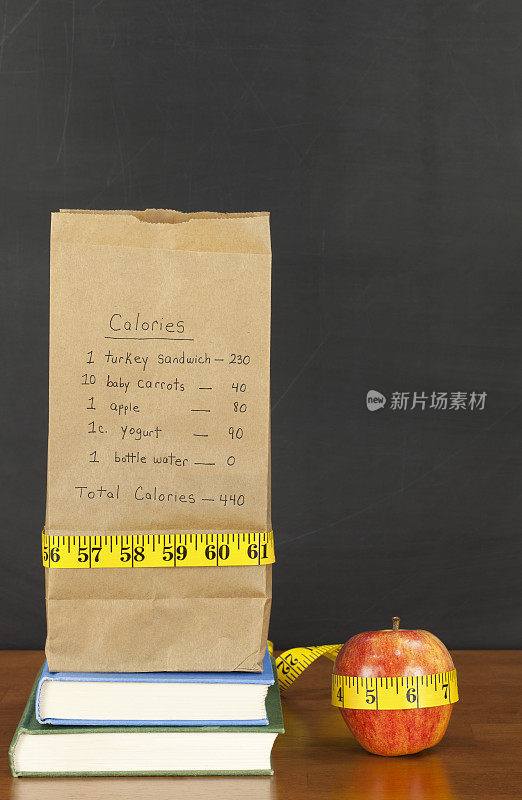 Calories
1 turkey sandwich – 230
10 baby carrots – 40
1 apple – 80
1c. yogurt – 90
1 bottle water – 0
Total Calories – 440
56 57 58 59 60 61
22
4 5 6 7
new 新片场素材